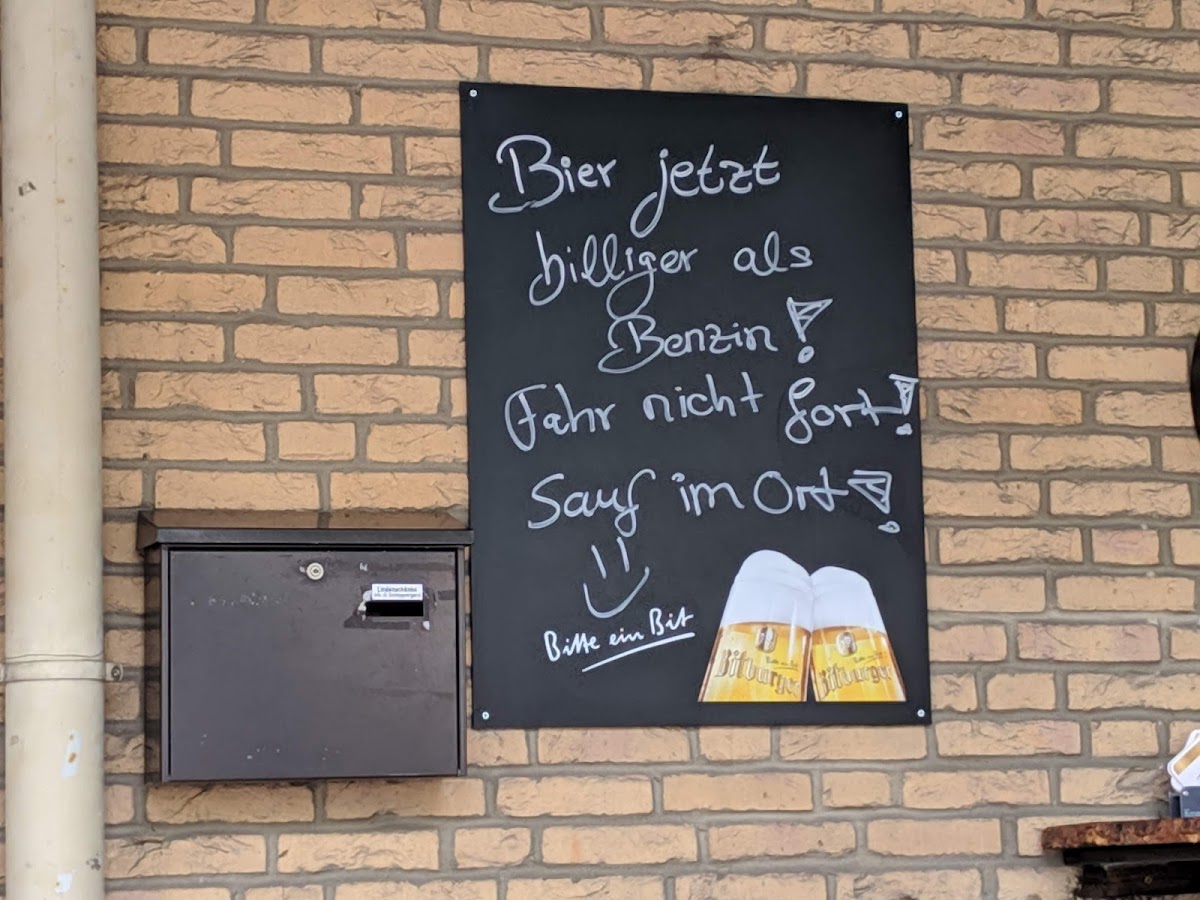 Bier jetzt
billiger als
Benzin!
Fahr nicht fort!
Sauf im Ort!
Bitte ein Bit
Bitburger Bitburger